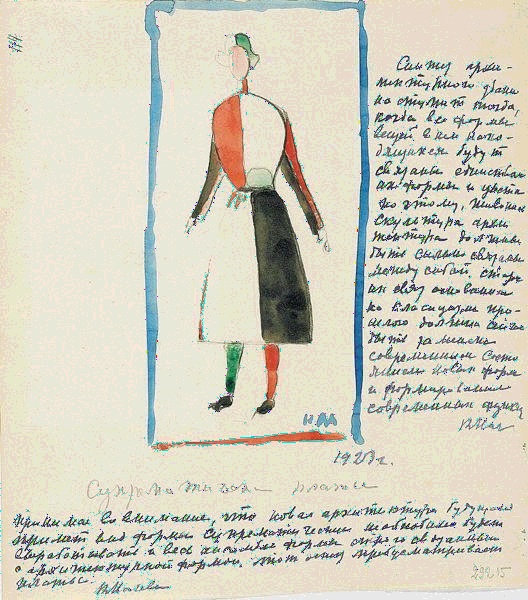 774
Синтез архи-
тектурного здания
наступит тогда,
когда все формы
вещей в нем нахо-
дящихся будут
связаны единством
их формы и цвета
по этому, живопись
скульптура архи
тектура должны
быть сильно связаны
между собой, старая
их связь основанная
на классицизме про-
шлого должна сейчас
быть заменена
современным состо
новых форм
и формированием
современных
К Мал
1923г.
Супрематическое платье
Принимая во внимание, что новая архитектура будущего
примет вид формы супрематической необходимо будет
выработать и весь ансамбль форм строго связанный
с архитектурной формой. этот эскиз предусматривает
платье.
К Малевич